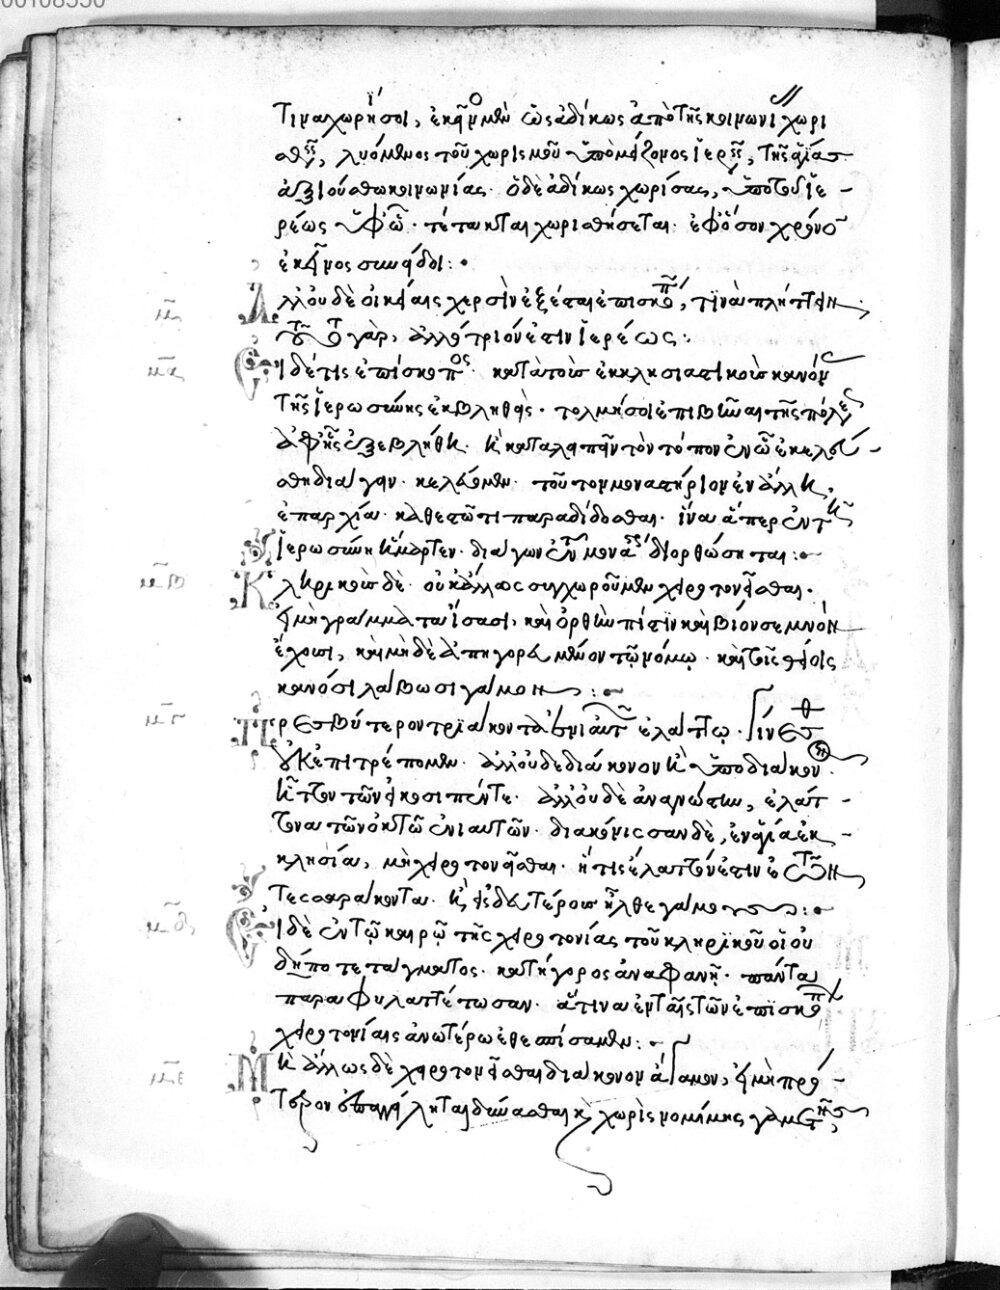 τινα χωρήσοι, ἐκεῖνον μὲν ὃς ἀδίκως ἀπὸ τῆς κοινωνί χωρι
σθῇ, λυόμενος τοῦ χωρισμοῦ ὑπὸ μείζονος ἱερ, τῆς ἁγίας
ἀξιούσθω κοινωνίας· ὁ δὲ ἀδίκως χωρίσας, ὑπὸ τοῦ ἱε-
ρέως ὑφ' ὃν τέτακται χωρισθήσεται· ἐφ' ὅσον χρόνον
ἐκεῖνος συνίδοι:·
Ἀλλ' οὐδὲ οἰκείαις χερσὶν ἔξεσται ἐπισκόπ, τινὰ πλήττειν,
τοῦτο γὰρ, ἀλλότριόν ἐστιν ἱερέως:
Εἰ δέ τις ἐπίσκοπος· κατὰ τοὺς ἐκκλησιαστικοὺς κανόν
τῆς ἱερωσύνης ἐκβληθεὶς· τολμήσοι ἐπιβῆναι τῆς πόλε
ἀφ' ἧς ἐξεβλήθη· καὶ καταλιπεῖν τὸν τόπον ἐν ᾧ ἐκελεύ-
σθη διάγειν· κελεύομεν· τοῦτον μοναστηρίῳ ἐν ἄλλη
ἐπαρχία καθεστῶτι παραδίδοσθαι· ἵνα ἅπερ ἐν τῇ
ἱερωσύνη ἥμαρτεν· διάγων ἐν μονα διορθώσηται:
Κληρικοὺς δὲ· οὐκ ἄλλως συγχωροῦμεν χειροτονεῖσθαι·
εἰ μὴ γράμματα ἴσασι, καὶ ὀρθὴν πίστιν καὶ βίον σεμνὸν
ἔχουσι, καὶ μηδὲ ἀπηγορευμένον τῷ νόμῳ· καὶ τοῖς θείοις
κανόσι λάβωσι γάμον:
Πρεσβύτερον τριάκοντα ἐνιαυτ ἐλάττω· γίνεσθ
οὐκ ἐπιτρέπομεν· ἀλλ' οὐδὲ διάκονον καὶ ὑποδιάκον
ἥττον τῶν εἴκοσι πέντε· ἀλλ' οὐδὲ ἀναγνώστην, ἐλάτ-
τονα τῶν ὀκτὼ ἐνιαυτῶν· διακόνισσαν δὲ, ἐν ἁγία ἐκ-
κλησία, μὴ χειροτονεῖσθαι· ἥτις ἐλάττον ἐστιν ἐτῶν
τεσσαράκοντα· καὶ εἰς δευτέρους ἦλθε γάμους:
Εἰ δὲ ἐν τῷ καιρῷ τῆς χειροτονίας τοῦ κληρικοῦ οἵου
δήποτε τάγματος· κατήγορος ἀναφανῇ· πάντα
παραφυλαττέτωσαν· ἅτινα ἐν ταῖς τῶν ἐπισκόπ
χειροτονίαις ἀνωτέρω ἐθεσπίσαμεν:
Μὴ ἄλλως δὲ χειροτονεῖσθαι διάκονον ἄγαμον, εἰ μὴ πρό-
τερον ἐπαγγείληται δύνασθαι καὶ χωρὶς νομίμης γαμετῆς,